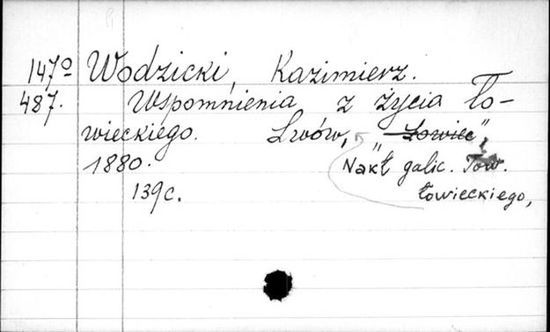 147° Wodzicki, Kazimierz.
487. Wspomnienia z życia ło-
wieckiego. Lwów, "Łowiec",
1880. Nakł galic. Tow.
139c. łowieckiego,